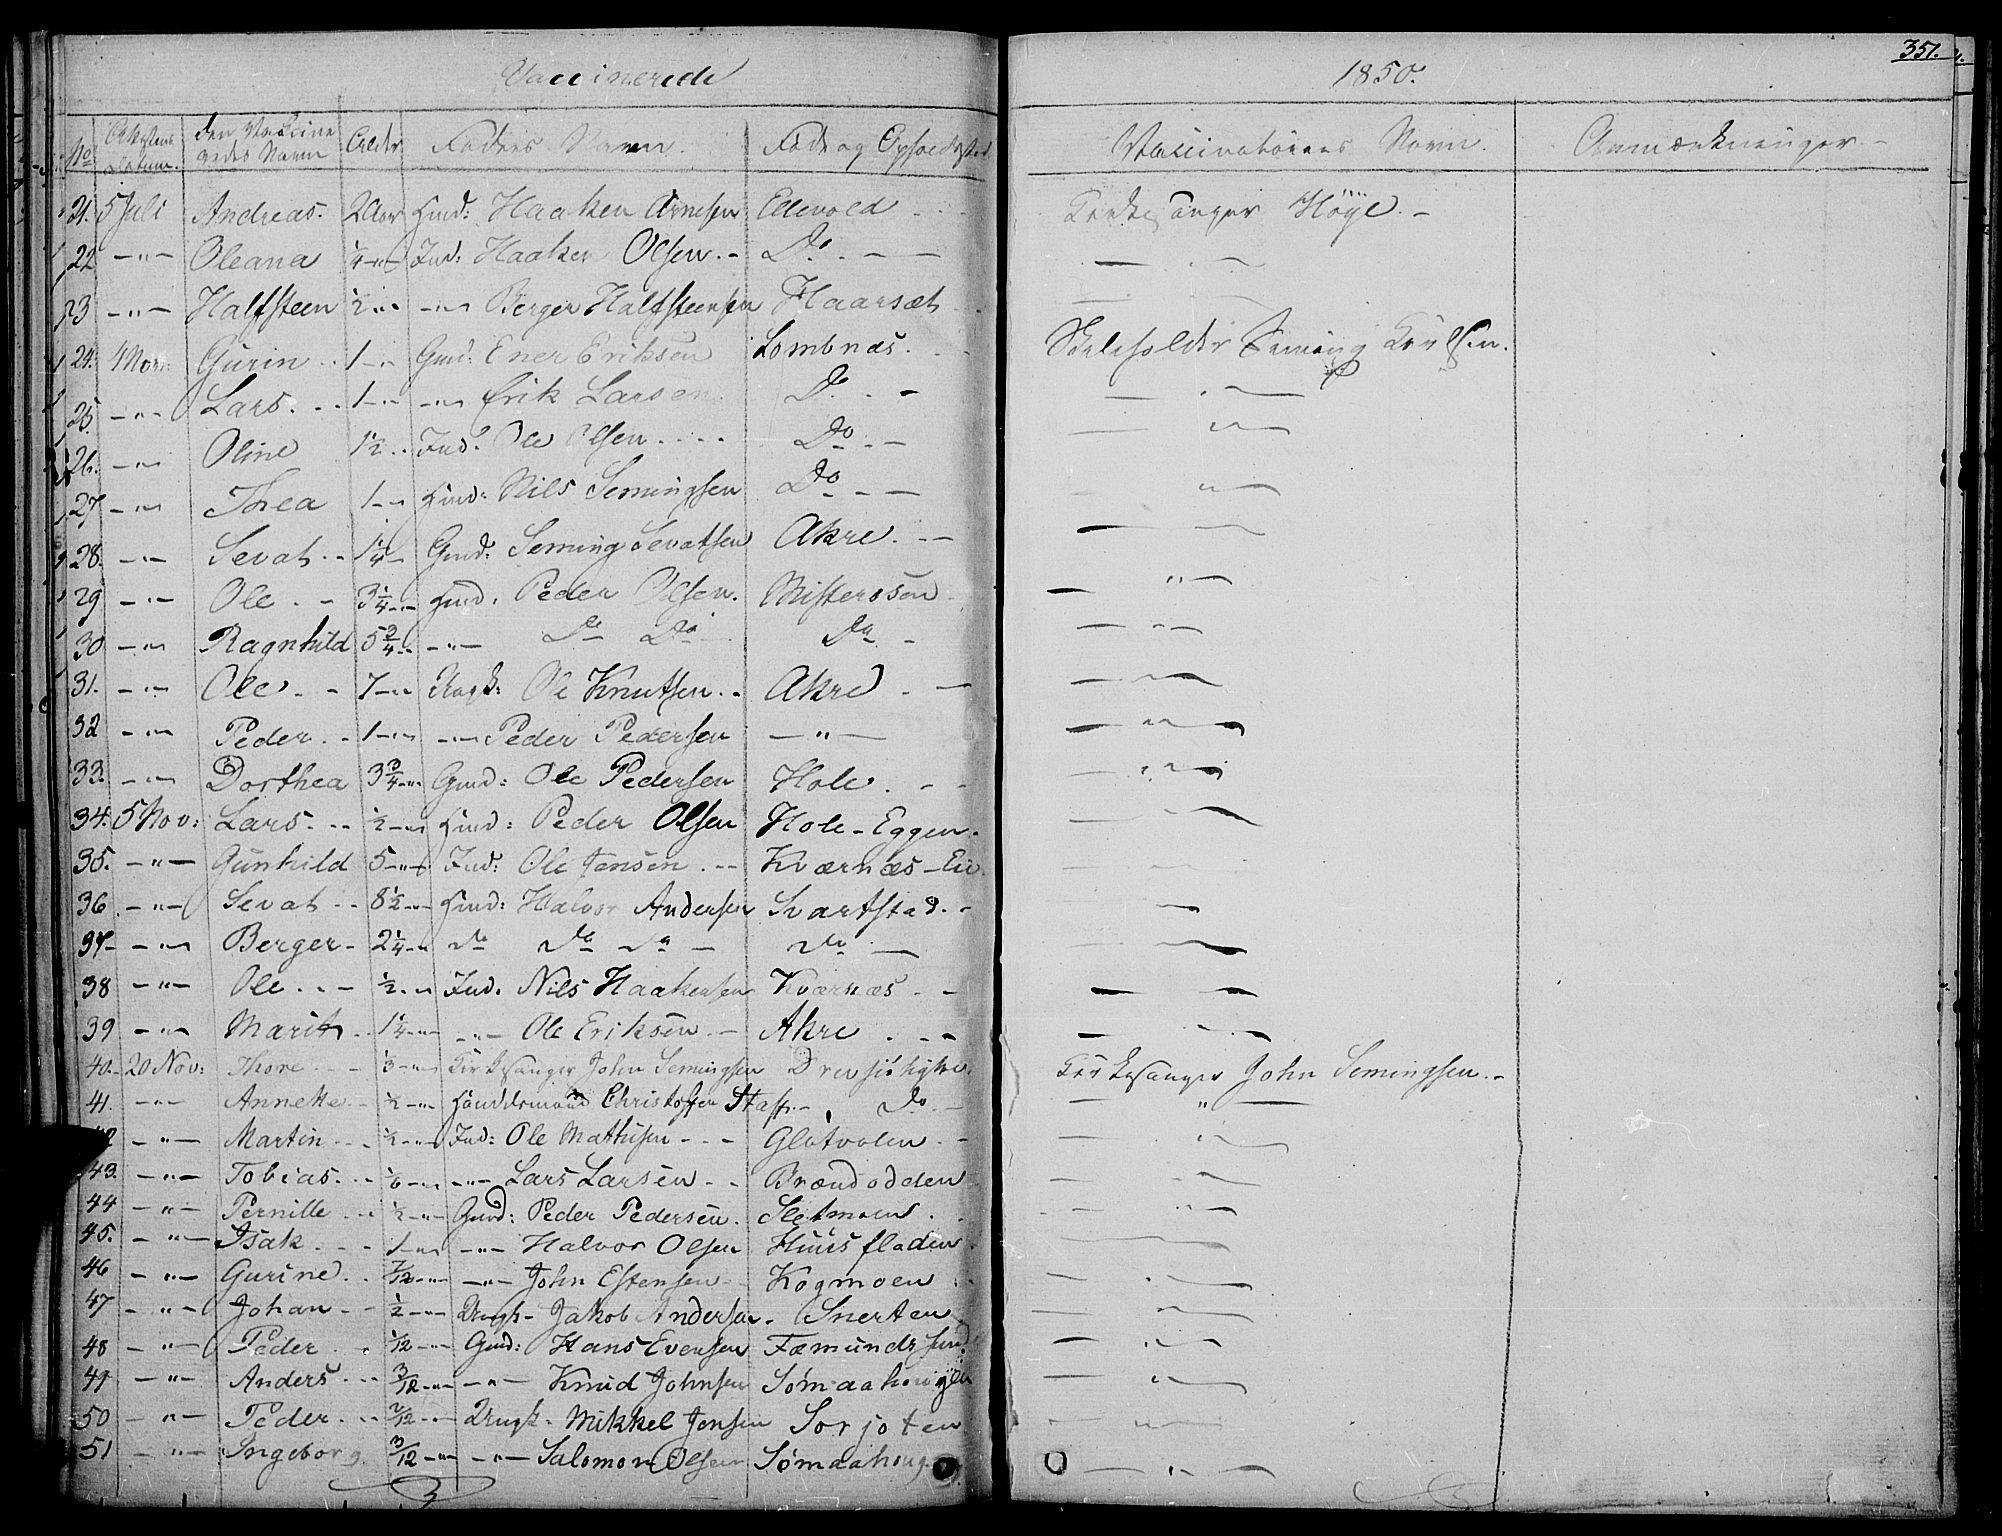 Vaccinerede 1850. 351.
No Datum. den Vaccine- redes Navn Alder Faders Navn. Føde og Opholdssted Vaccinatörens Navn. Anmærkninger
21. 5 Juli Andreas. 2 Aar Hmd: Haaken Arnesen Ellevold Kirkesanger Höye.
22 — " — Oleana ¼ - " - Ind: Haaken Olsen. Do. — " —
23 — " — Halfsteen ½ - " - - " - Berger Halfsteensen Haarsæt — " —
24. 4 Nov: Gurin 1 - " - Gmd: Ener Eriksen Lombnæs. Skoleholder Seming
25. — " — Lars. 1 - " - - " - Erik Larsen Do. — " —
26. — " — Oline 1½ Ind: Ole Olsen Do — " —
27 — " — Thea 1 - " - Hmd: Nils Semingsen Do — " —
28. — " — Sevat 1¼ Gmd: Seming Sevatsen Akre. — " —
29 — " — Ole 3¼ - " - Hmd: Peder Olsen. Misterosen — " —
30 — " — Ragnhild 5¾ - " - - " - Do Do Do — " —
31. — " — Ole 7 - " - Ungk: Ole Knutsen Akre — " —
32 — " — Peder 1 - " - - " - Peder Pedersen — " — — " —
33. — " — Dorthea 3¾ - " - Gmd: Ole Pedersen Hole. — " —
34. 5 Nov: Lars. ½ - " - Hmd: Peder Olsen Hole-Eggen. — " —
35. — " — Gunhild 5 - " - Ind: Ole Jensen Kværnæs-Eie — " —
36 — " — Sevat 8½ - " - Hmd: Halvor Andersen Svartstad. — " —
37 — " — Berger 2¼ - " - do do do do — " —
38 — " — Ole ½ - " - Ind. Nils Haakensen Kværnæs — " —
39 — " — Marit 1¼ - " - - " - Ole Eriksen Akre — " —
40. 20 Nov: Thore 3 - " - Kirkesanger John Semingsen Drevsiöhytte. Kirkesanger John Semingsen.
41. — " — Annette ½ - " - Christoffer Staff Do — " —
42 — " — Martin ½ - " - Ind: Ole Mathisen Glötvolen — " —
43. — " — Tobias. - " - - " - Lars Larsen Brændodden — " —
44 — " — Pernille ½ - " - Gmd: Peder Pedersen. Sletmoen — " —
45. — " — Isak 1 - " - - " - Halvor Olsen Huusfloden — " —
46 — " — Gurine 7/12 - " - - " - John Estensen Kogmoen — " —
47 — " — Johan ½ - " - Ungk- Jakob Andersen. Snerten — " —
48 — " — Peder 1/12 - " - Gmd: Hans Evensen Fæmundssund — " —
49 — " — Anders 3/12 - " - - " - Knud Johnsen Sömaahougen — " —
50 — " — Peder 2/12 - " - Ungk- Mikkel Jensen Sorjoten — " —
51 — " — Ingeborg 3/12 - " - - " - Salomon Olsen Sömaahoug — " —